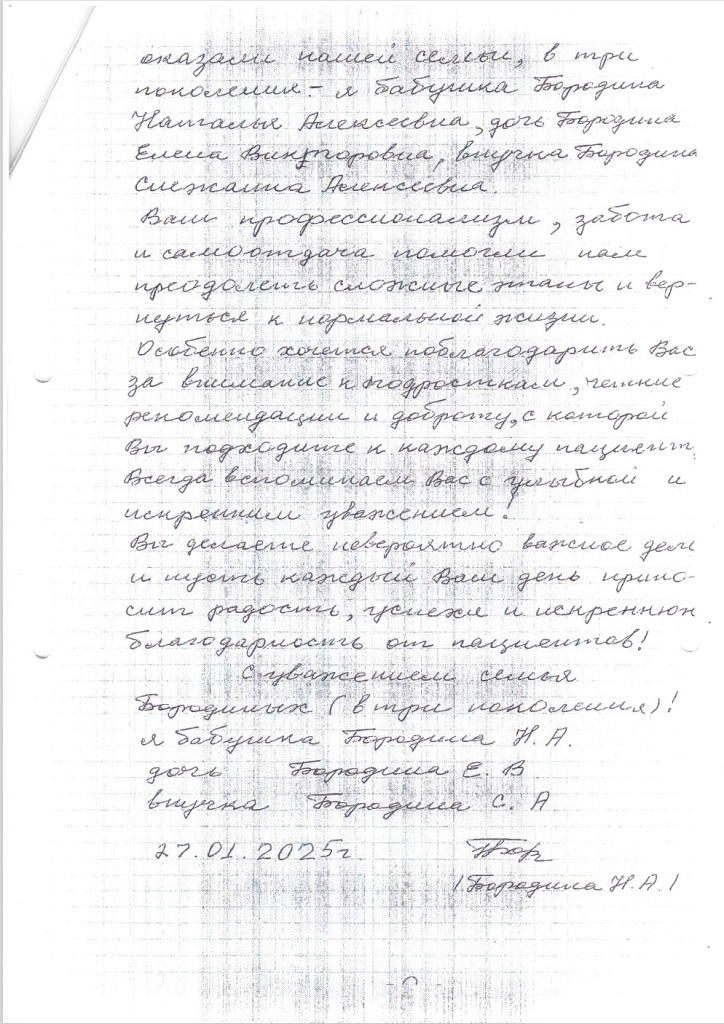 оказали нашей семьи, в три
поколения - я бабушка Бородина
Наталья Алексеевна, дочь Бородина
Елена Викторовна, внучка Бородина
Снежанна Алексеевна.
Ваш профессионализм, забота
и самоотдача помогли нам
преодолеть сложные этапы и вер-
нуться к нормальной жизни.
Особенно хочется поблагодарить Вас
за внимание к подросткам, четкие
рекомендации и доброту, с которой
Вы подходите к каждому пациент.
Всегда вспоминаем Вас с улыбкой и
искренним уважением!
Вы делаете невероятно важное дело
и пусть каждый Ваш день прино-
сит радость, успехи и искреннюю
благодарность от пациентов!
С уважением семья
Бородиных (в три поколения)!
я бабушка Бородина Н. А.
дочь Бородина Е. В
внучка Бородина С. А
27.01.2025г. Бор
/Бородина Н.А./